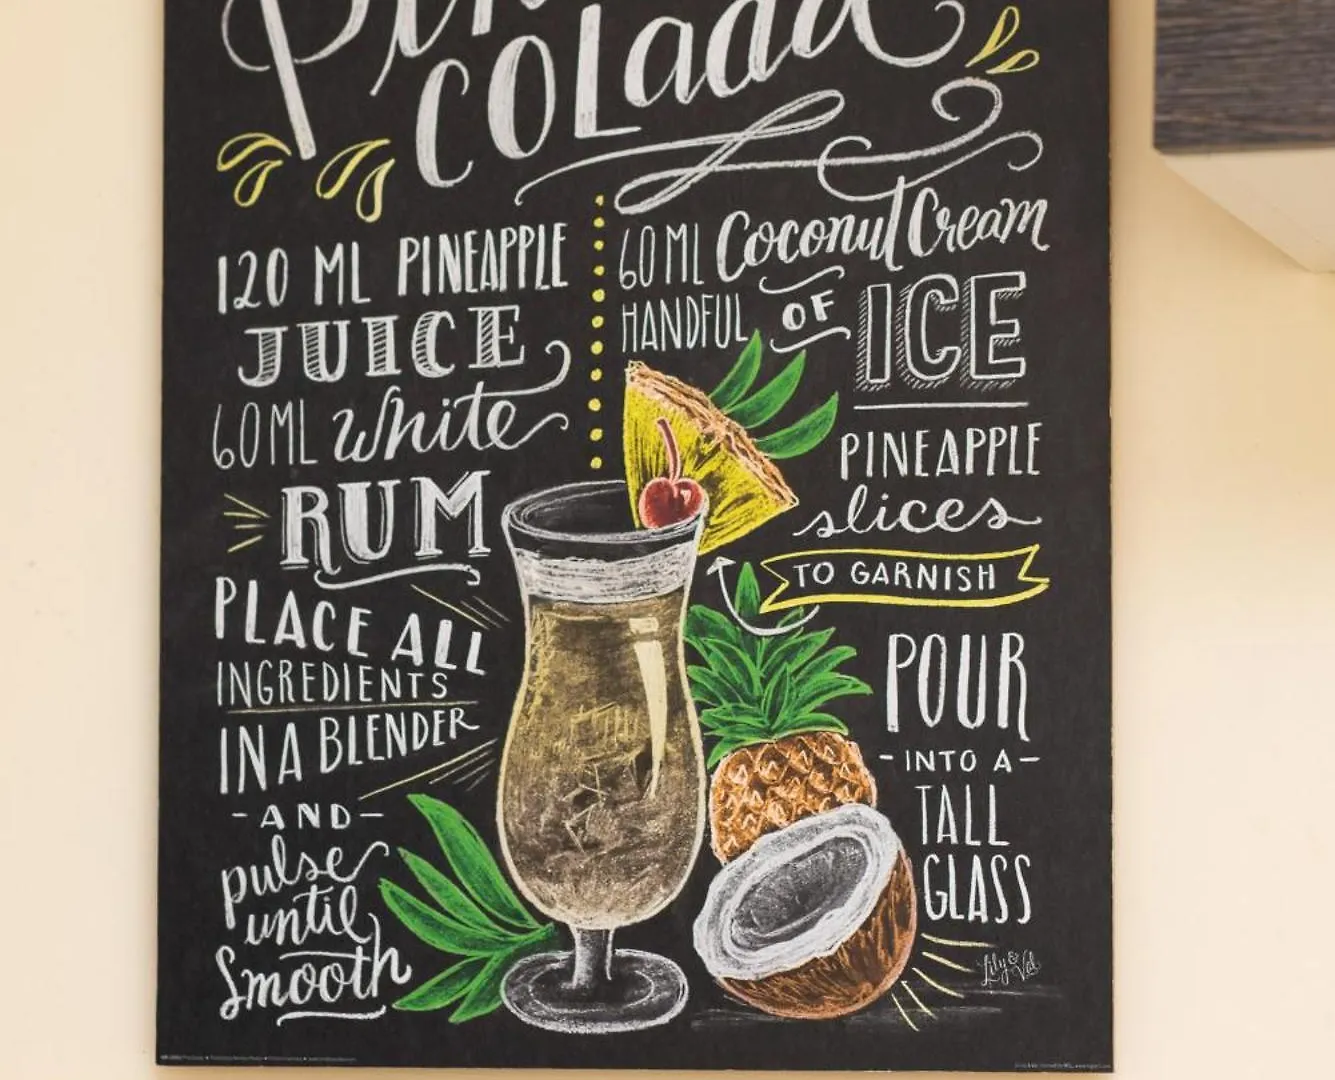 COLADA
120 ML PINEAPPLE
JUICE
60 ML White
RUM
PLACE ALL
INGREDIENTS
IN A BLENDER
-AND-
pulse
until
Smooth
60 ML Coconut Cream
HANDFUL OF ICE
PINEAPPLE
slices
TO GARNISH
POUR
-INTO A-
TALL
GLASS
Lily & Val